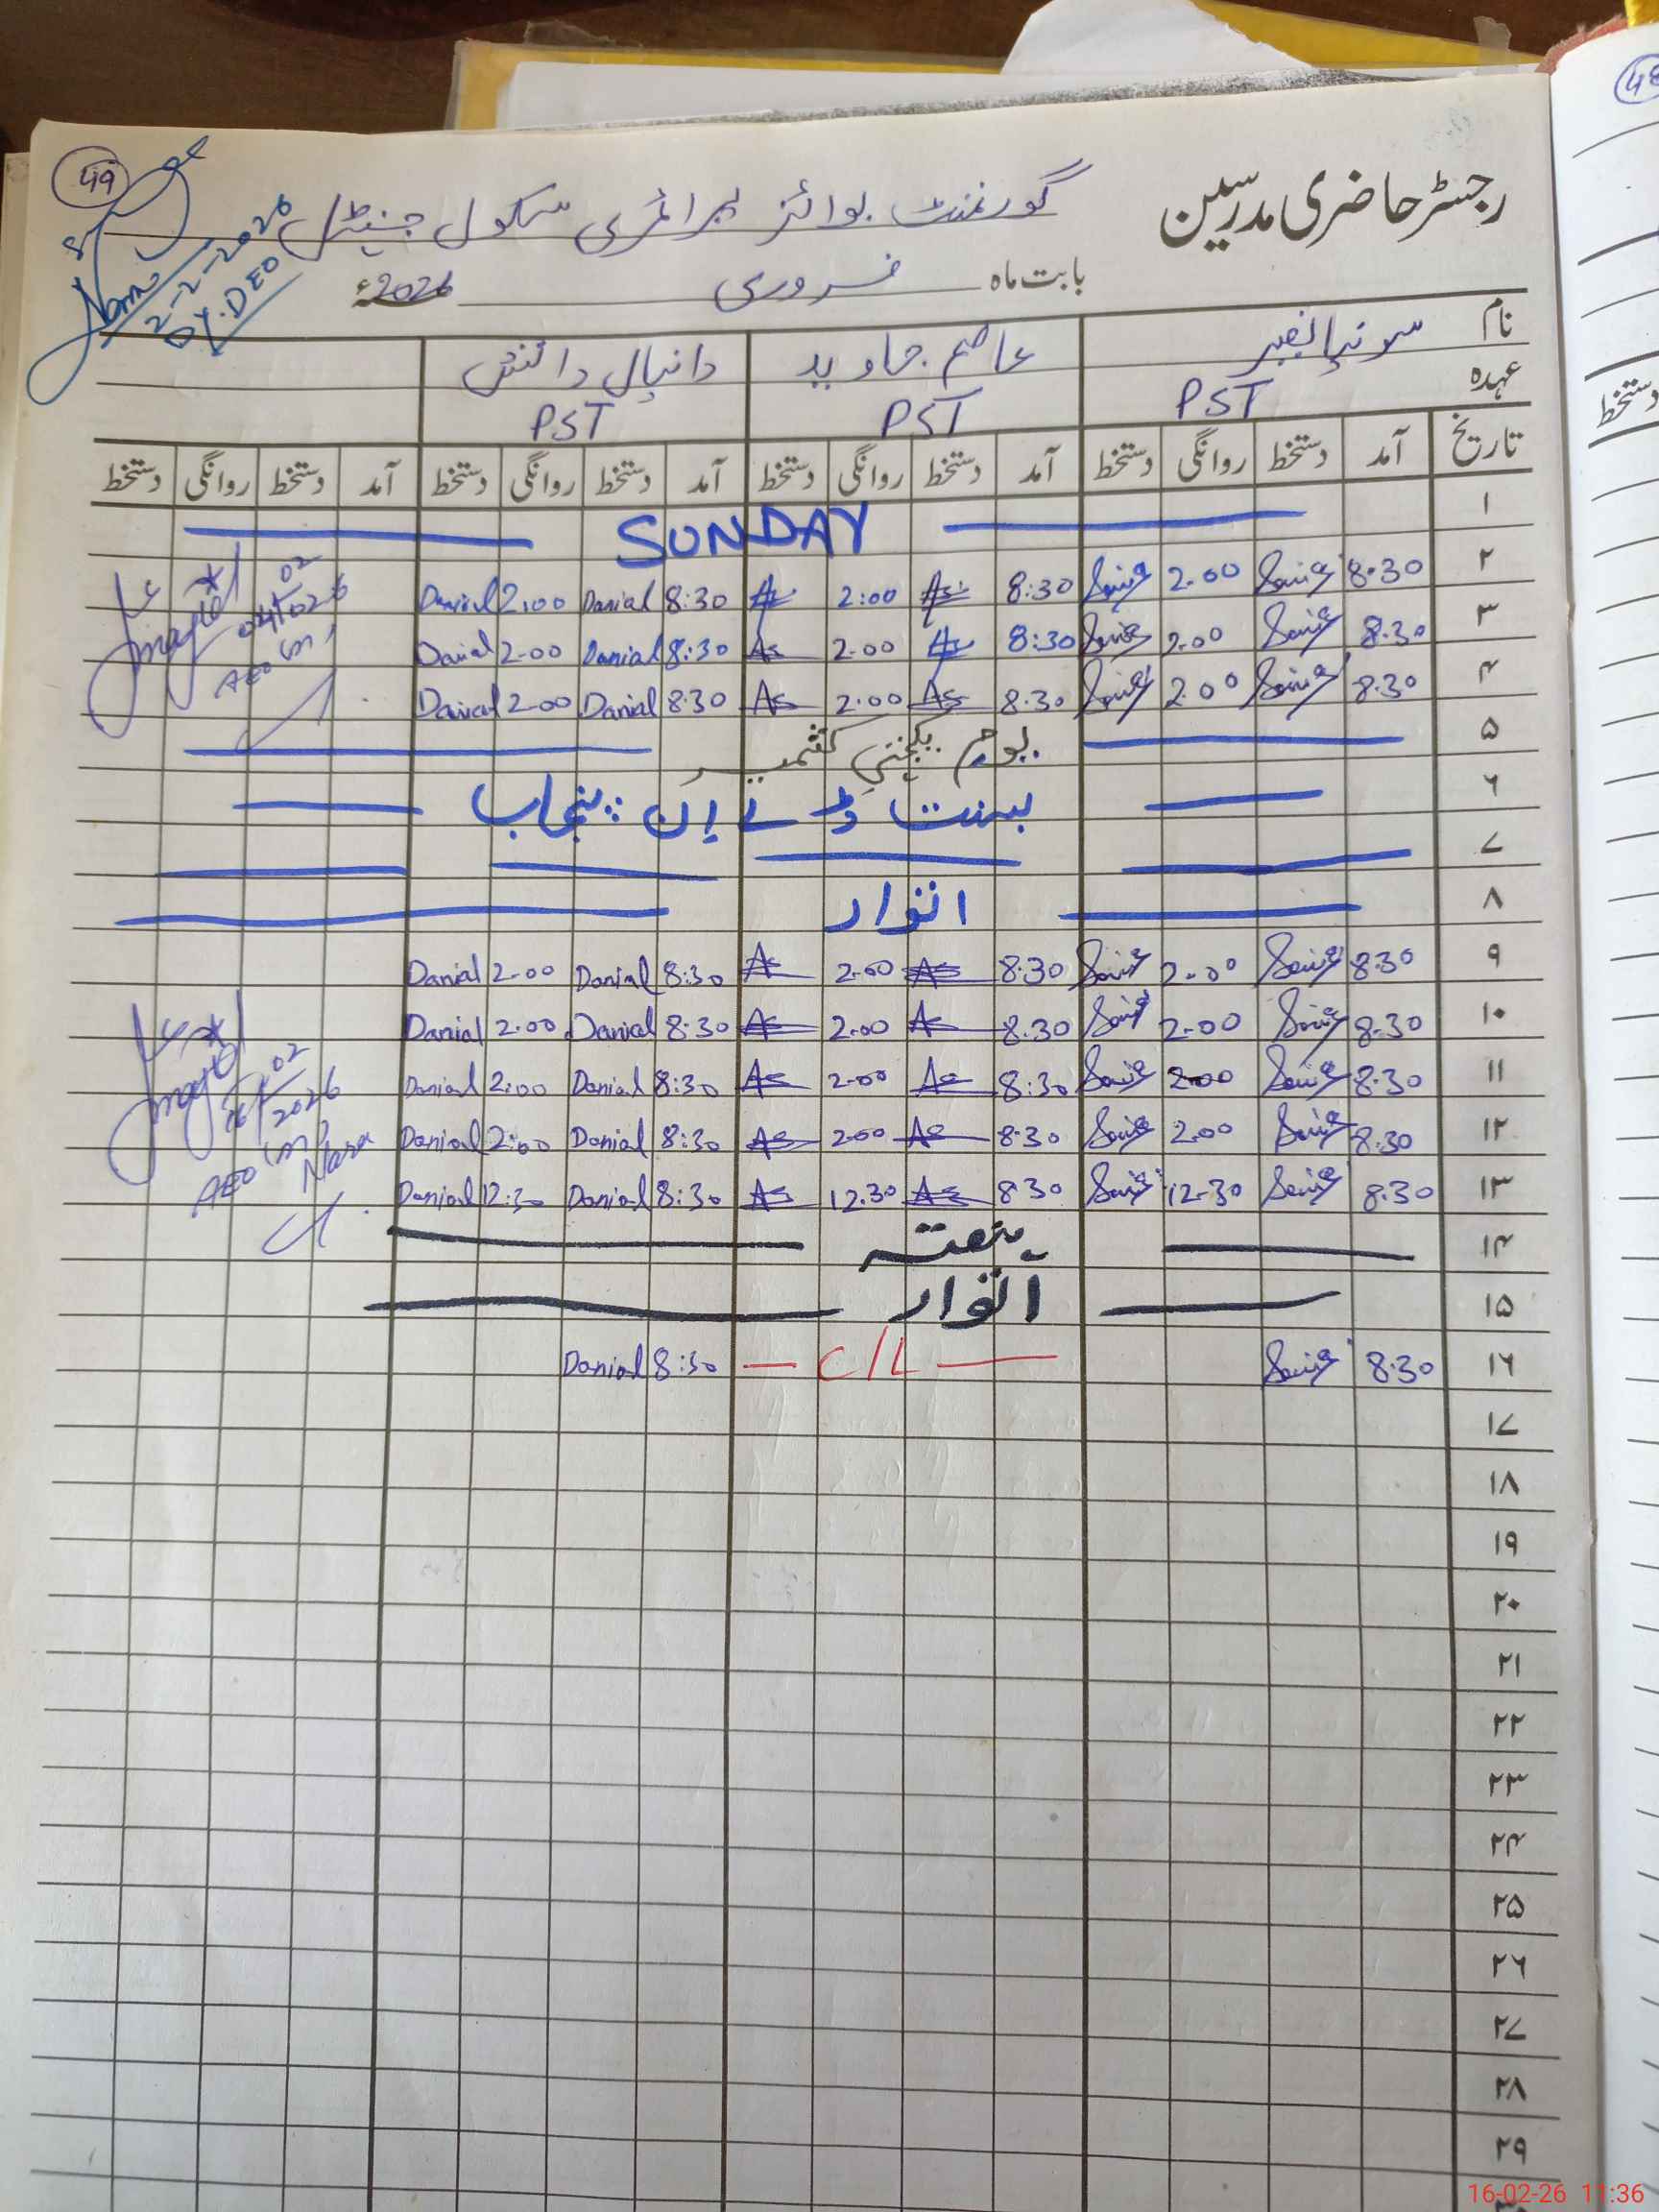 49
48
رجسٹر حاضری مدرسین
گورنمنٹ بوائز پرائمری سکول
بابت ماہ فروری 2026ء
2-2-2026
DY.DEO
نام عاصم جاوید دانیال دانش
عہدہ PST PST PST
تاریخ آمد دستخط روانگی دستخط آمد دستخط روانگی دستخط آمد دستخط روانگی دستخط آمد دستخط روانگی دستخط
دستخط
۱ SUNDAY
۲ 8:30 2.00 8:30 As 2:00 As 8:30 Danial 2:00 Danial
۳ 8.30 2.00 8:30 As 2.00 As 8:30 Danial 2.00 Danial
۴ 8.30 2.00 8.30 As 2.00 As 8:30 Danial 2.00 Danial
04/02/2026
AEO (m)
۵ یوم یکجہتی کشمیر
۶ بسنت ڈے اِن پنجاب
۷
۸ اتوار
۹ 8.30 2.00 8.30 As 2.00 As 8:30 Danial 2.00 Danial
۱۰ 8.30 2.00 8.30 As 2.00 As 8:30 Danial 2.00 Danial
۱۱ 8.30 2.00 8:30 As 2.00 As 8:30 Danial 2:00 Danial
۱۲ 8.30 2.00 8.30 As 2.00 As 8:30 Danial 2:00 Danial
۱۳ 8.30 12.30 8.30 As 12.30 As 8:30 Danial 12:30 Danial
02/2026
AEO (m)
۱۴ ہفتہ
۱۵ اتوار
۱۶ 8.30 C/L 8:30 Danial
۱۷
۱۸
۱۹
۲۰
۲۱
۲۲
۲۳
۲۴
۲۵
۲۶
۲۷
۲۸
۲۹
16-02-26 11:36